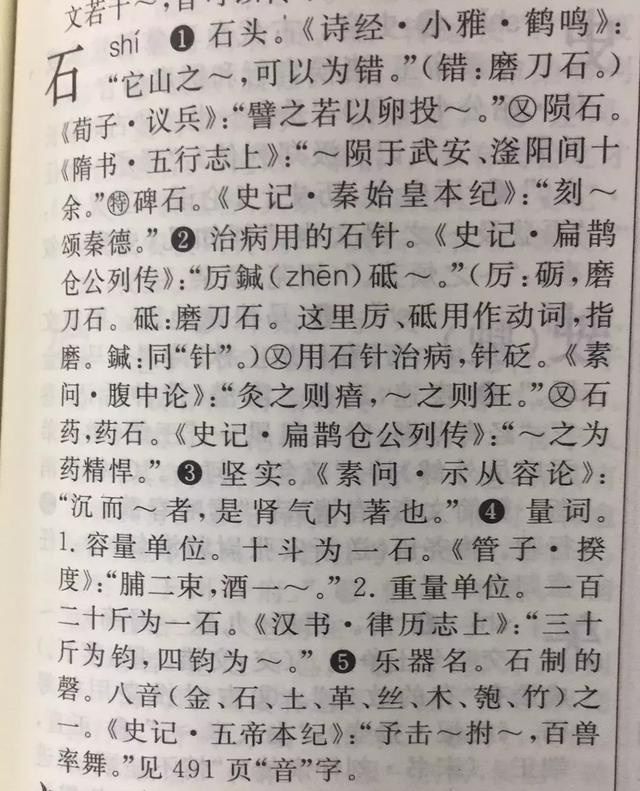 文若十～，
石 shí ❶ 石头。《诗经·小雅·鹤鸣》：
“它山之～，可以为错。”（错：磨刀石。）
《荀子·议兵》：“譬之若以卵投～。”㊁陨石。
《隋书·五行志上》：“～陨于武安、滏阳间十
余。”㊕碑石。《史记·秦始皇本纪》：“刻～
颂秦德。”❷ 治病用的石针。《史记·扁鹊
仓公列传》：“厉鍼（zhēn）砥～。”（厉：砺，磨
刀石。砥：磨刀石。这里厉、砥用作动词，指
磨。鍼：同“针”。）㊁用石针治病，针砭。《素
问·腹中论》：“灸之则瘖，～之则狂。”㊁石
药，药石。《史记·扁鹊仓公列传》：“～之为
药精悍。”❸ 坚实。《素问·示从容论》：
“沉而～者，是肾气内著也。”❹ 量词。
1. 容量单位。十斗为一石。《管子·揆
度》：“脯二束，酒一～。”2. 重量单位。一百
二十斤为一石。《汉书·律历志上》：“三十
斤为钧，四钧为～。”❺ 乐器名。石制的
磬。八音（金、石、土、革、丝、木、匏、竹）之
一。《史记·五帝本纪》：“予击～拊～，百兽
率舞。”见 491 页“音”字。